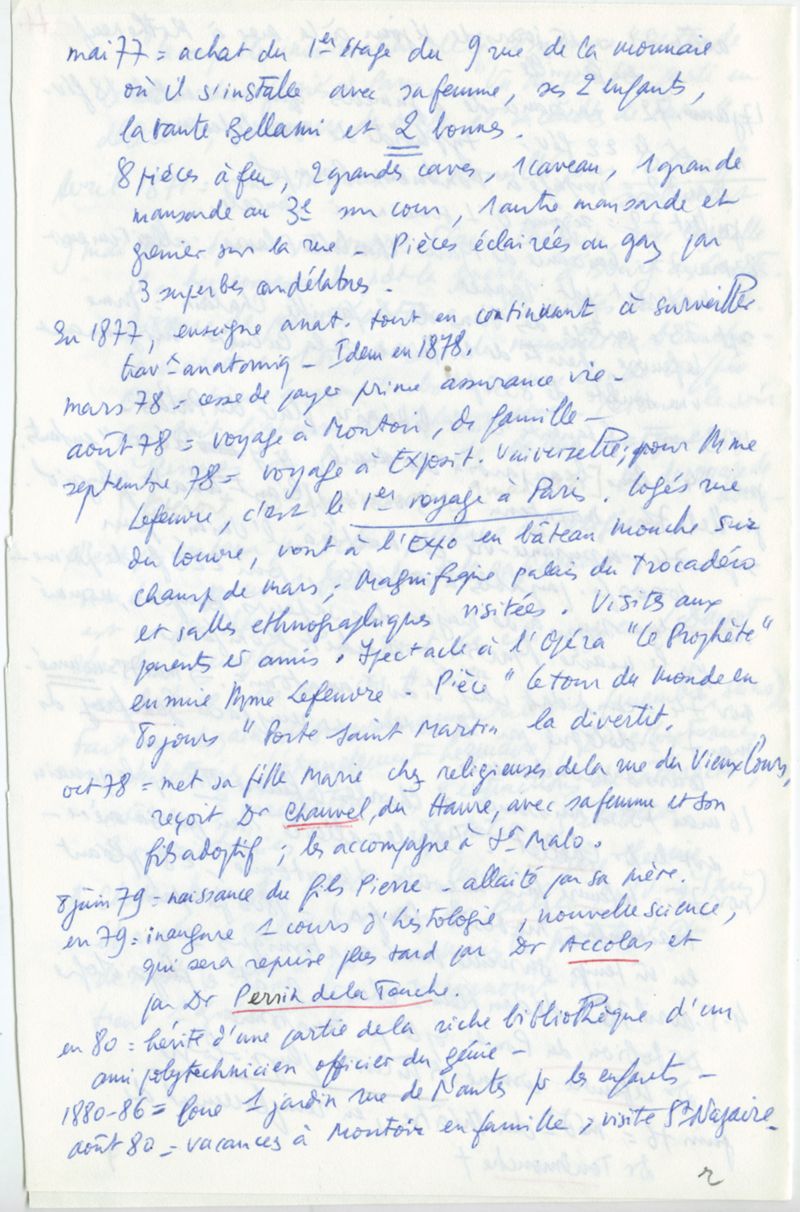 mai 77 = achat du 1er étage du 9 rue de la monnaie
où il s'installe avec sa femme, ses 2 enfants,
la tante Bellami et 2 bonnes.
8 pièces à feu, 2 grandes caves, 1 caveau, 1 grande
mansarde au 3e sur cour, 1 autre mansarde et
grenier sur la rue - Pièces éclairées au gaz par
3 superbes candélabres.
En 1877, enseigne anat. tout en continuant à surveiller
travx anatomiq - Idem en 1878.
mars 78 = cesse de payer prime assurance vie -
août 78 = voyage à Montoir, de famille -
septembre 78 = voyage à Exposit. Universelle; pour Mme
Lefeuvre, c'est le 1er voyage à Paris. Logés rue
du Louvre, vont à l'Expo en bâteau mouche sur
champ de Mars; Magnifique palais du Trocadéro
et salles ethnographiques visitées. Visites aux
parents et amis. Spectacle à l'Opéra "Le Prophète"
ennuie Mme Lefeuvre. Pièce "Le tour du Monde en
80 jours" Porte Saint Martin la divertit.
oct 78 = met sa fille Marie chez religieuses de la rue du Vieux Cours,
reçoit Dr Chauvel, du Havre, avec sa femme et son
fils adoptif; les accompagne à St Malo.
8 juin 79 = naissance du fils Pierre - allaité par sa mère.
en 79 = inaugure 1 cours d'histologie, nouvelle science,
qui sera reprise plus tard par Dr Accolas et
par Dr Perrin de la Touche.
en 80 = hérite d'une partie de la riche bibliothèque d'un
ami polytechnicien officier du génie -
1880-86 = loue 1 jardin rue de Nantes pr les enfants -
août 80 = vacances à Montoir en famille, visite St Nazaire -
2